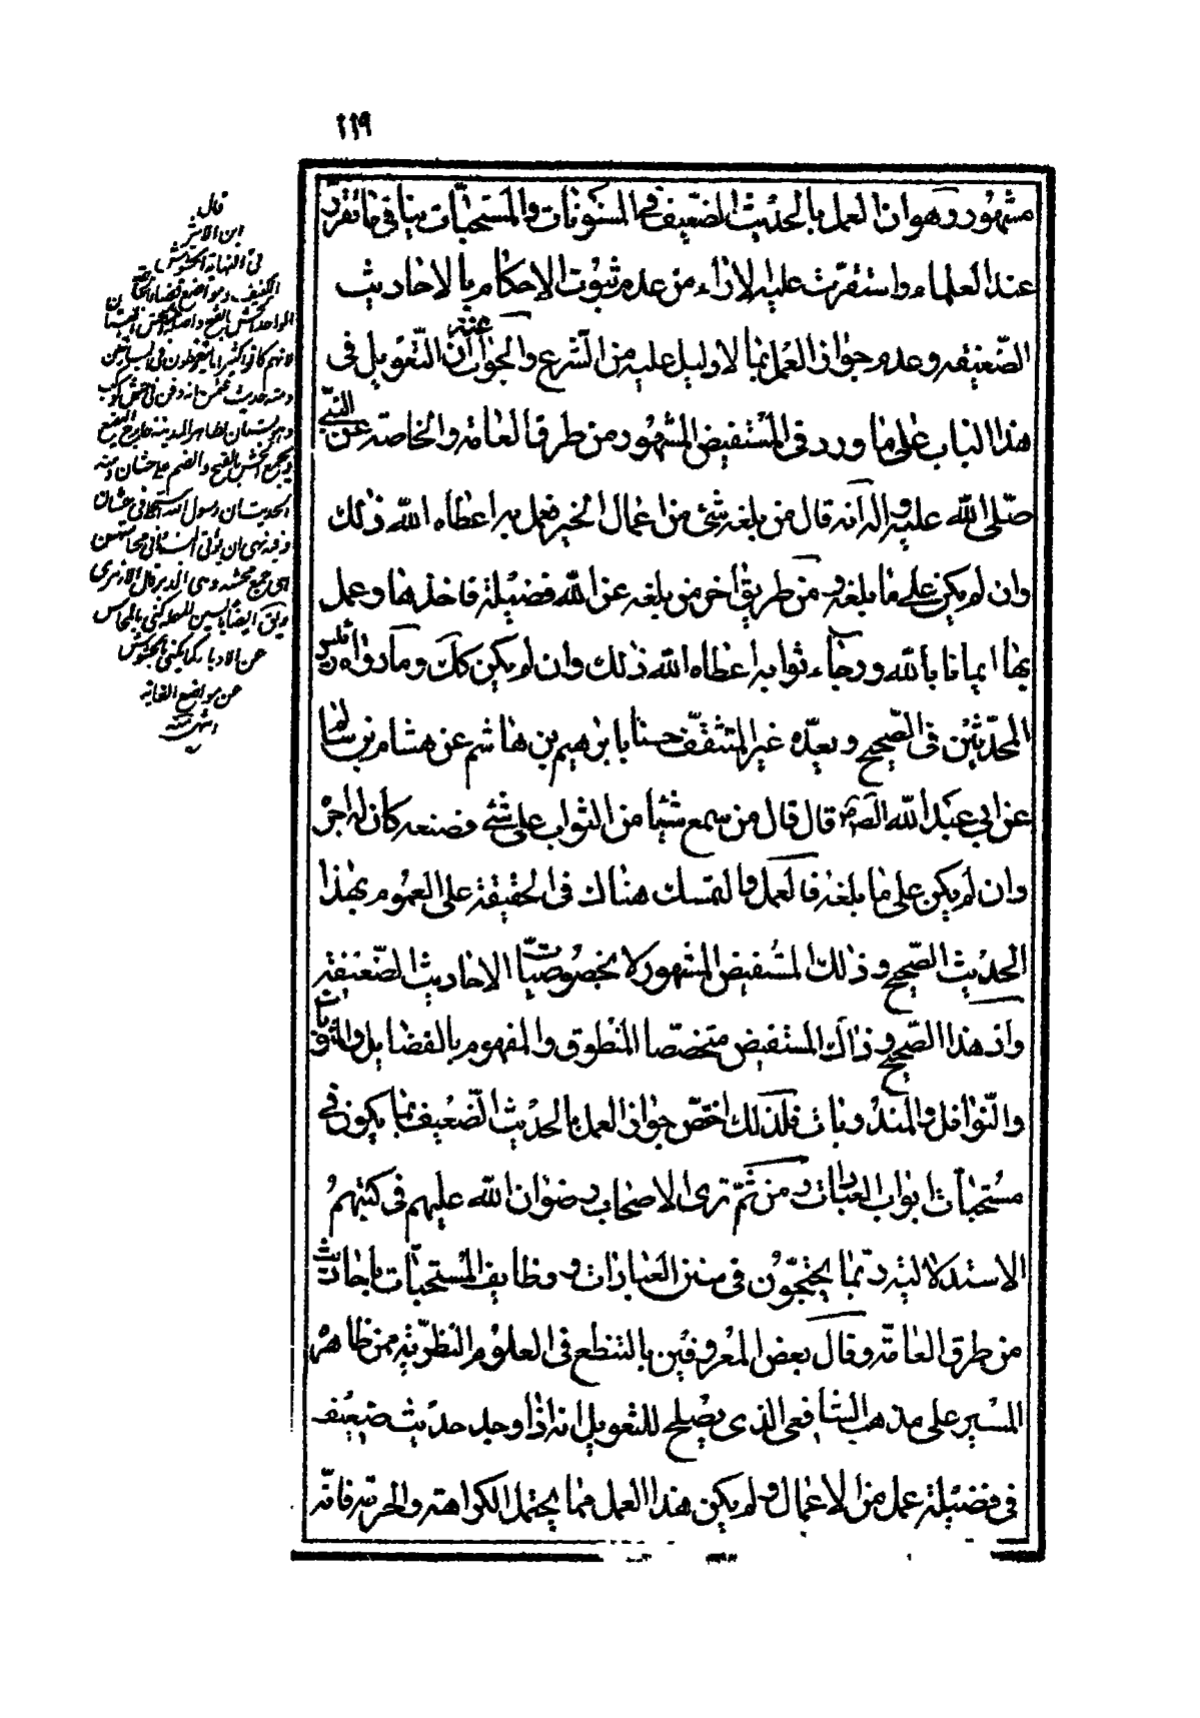 ١١٩
مشهور وهو ان العمل بالحديث الضعيف في المسنونات والمستحبات ينافي ما تقرر
عند العلماء واستقرت عليه الاراء من عدم ثبوت الاحكام بالاحاديث
الضعيفه وعدم جواز العمل بما لا دليل عليه من الشرع والجواب عنه ان التعويل في
هذا الباب على ما ورد في المستفيض المشهور من طرق العامة والخاصة عن النبي
صلى الله عليه واله انه قال من بلغه شئ من اعمال الخير فعمل به اعطاه الله ذلك
وان لم يكن على ما بلغه و من طريق اخر من بلغه عن الله فضيلة فاخذها وعمل
بها ايمانا بالله ورجاء ثوابه اعطاه الله ذلك وان لم يكن كك وما رواه رئيس
المحدثين في الصحيح وبعده غير المتثقف حسنا بابرهيم بن هاشم عن هشام بن سالم
عن ابي عبد الله الصم قال قال من سمع شيئا من الثواب على شئ فصنعه كان له اجره
وان لم يكن على ما بلغه فالعمل والتمسك هناك في الحقيقة على العموم بهذا
الحديث الصحيح وذلك المستفيض المشهور لا بخصوصيات الاحاديث الضعيفة
واذ هذا الصحيح وذاك المستفيض متخصصا المنطوق والمفهوم بالفضايل والمثوبات
والنوافل والمندوبات فلذلك اختص جواز العمل بالحديث الضعيف بما يكون في
مستحبات ابواب العبادات ومن ثم ترى الاصحاب رضوان الله عليهم في كتبهم
الاستدلالية ربما يحتجون في سنن العبادات و وظايف المستحبات باحاديث
من طرق العامة وقال بعض المعروفين بالتنطع في العلوم النظرية من ظاهر
المسير على مذهب الشافعي الذي يصلح للتعويل انه اذا وجد حديث ضعيف
في فضيلة عمل من الاعمال ولم يكن هذا العمل مما يحتمل الكراهة والحرمة فانه
قال
ابن الاثير
في النهاية الحشوش
الكنيف ومواضع قضاء الحاجة
الواحد حش بالفتح واصله من الحش البستان
لانهم كانوا كثيرا ما يتغوطون في البساتين
ومنه حديث عثمن انه دفن في حش كوكب
وهو بستان بظاهر المدينة خارج البقيع
ويجمع الحش بالفتح والضم على حشان ومنه
الحديث ان رسول الله استخلى في حشان
وفيه نهى ان يؤتى النساء في محاشهن
هي جمع محشة وهي الدبر قال الازهري
ويق ايضا بالسين المهملة كنى بالمحاش
عن الادبار كما يكنى بالحشوش
عن مواضع الغائط
انتهى منه